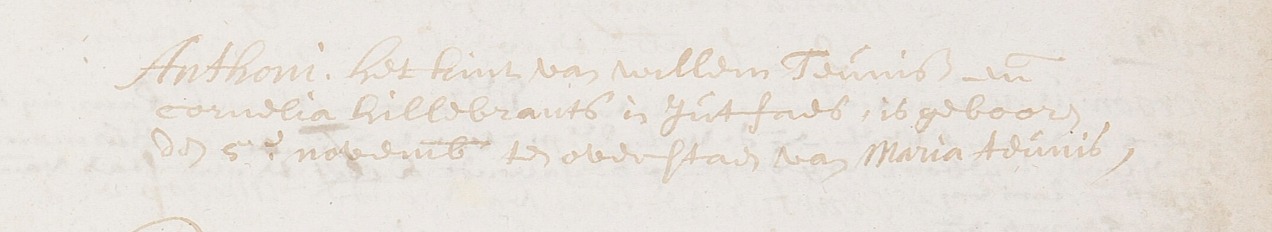 Anthoni. het kint van willem Teunis en
cornelia hillebrants in Jutfaes, is gebooren
den 5e novemb ten overstaen van Maria teunis,